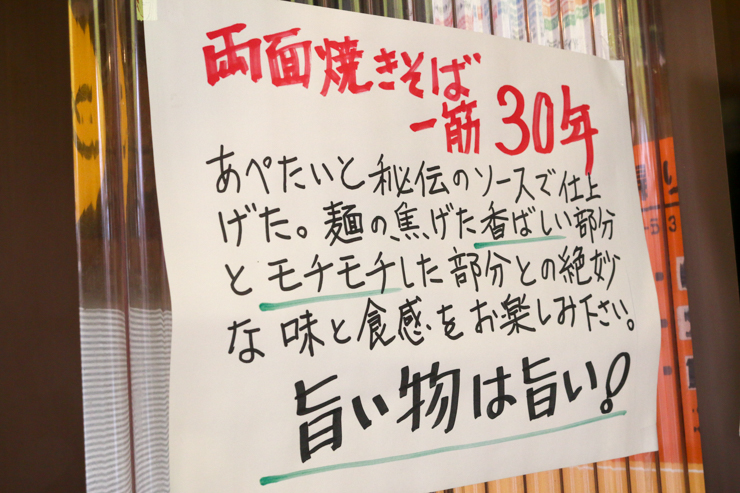 両面焼きそば
一筋30年
あぺたいと秘伝のソースで仕上
げた。麺の焦げた香ばしい部分
とモチモチした部分との絶妙
な味と食感をお楽しみ下さい。
旨い物は旨い!